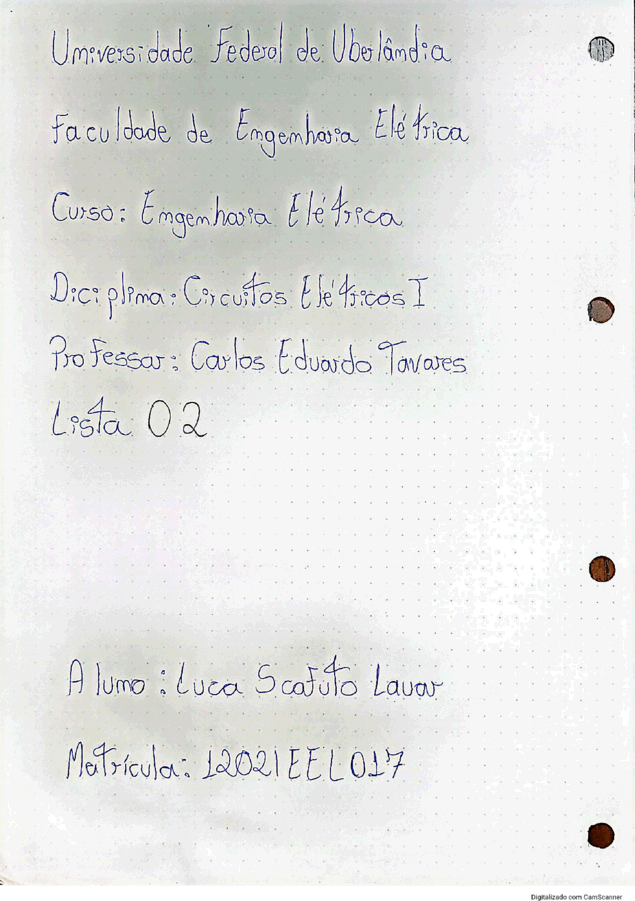 Universidade Federal de Uberlândia
Faculdade de Engenharia Elétrica
Curso: Engenharia Elétrica
Diciplina: Circuitos Elétricos I
Professor: Carlos Eduardo Tavares
Lista 02
Aluno: Luca Scafuto Lavar
Matrícula: 12021EEL017
Digitalizado com CamScanner